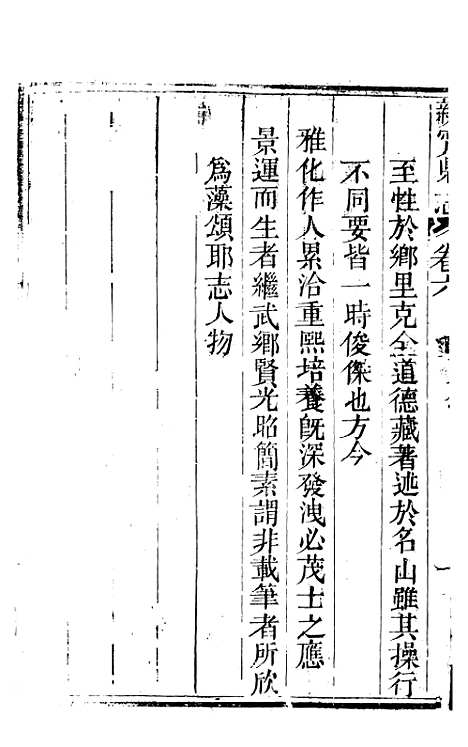 新寧縣志 卷六
至性於鄉里克全道德藏著述於名山雖其操行
不同要皆一時俊傑也方今
雅化作人累洽重熙培養旣深發洩必茂士之應
景運而生者繼武鄉賢光昭簡素謂非載筆者所欣
爲藻頌耶志人物